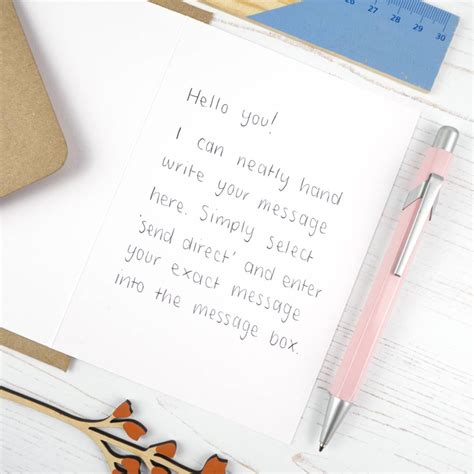 26 27 28 29 30
Hello you!
I can neatly hand
write your message
here. Simply select
'send direct' and enter
your exact message
into the message box.